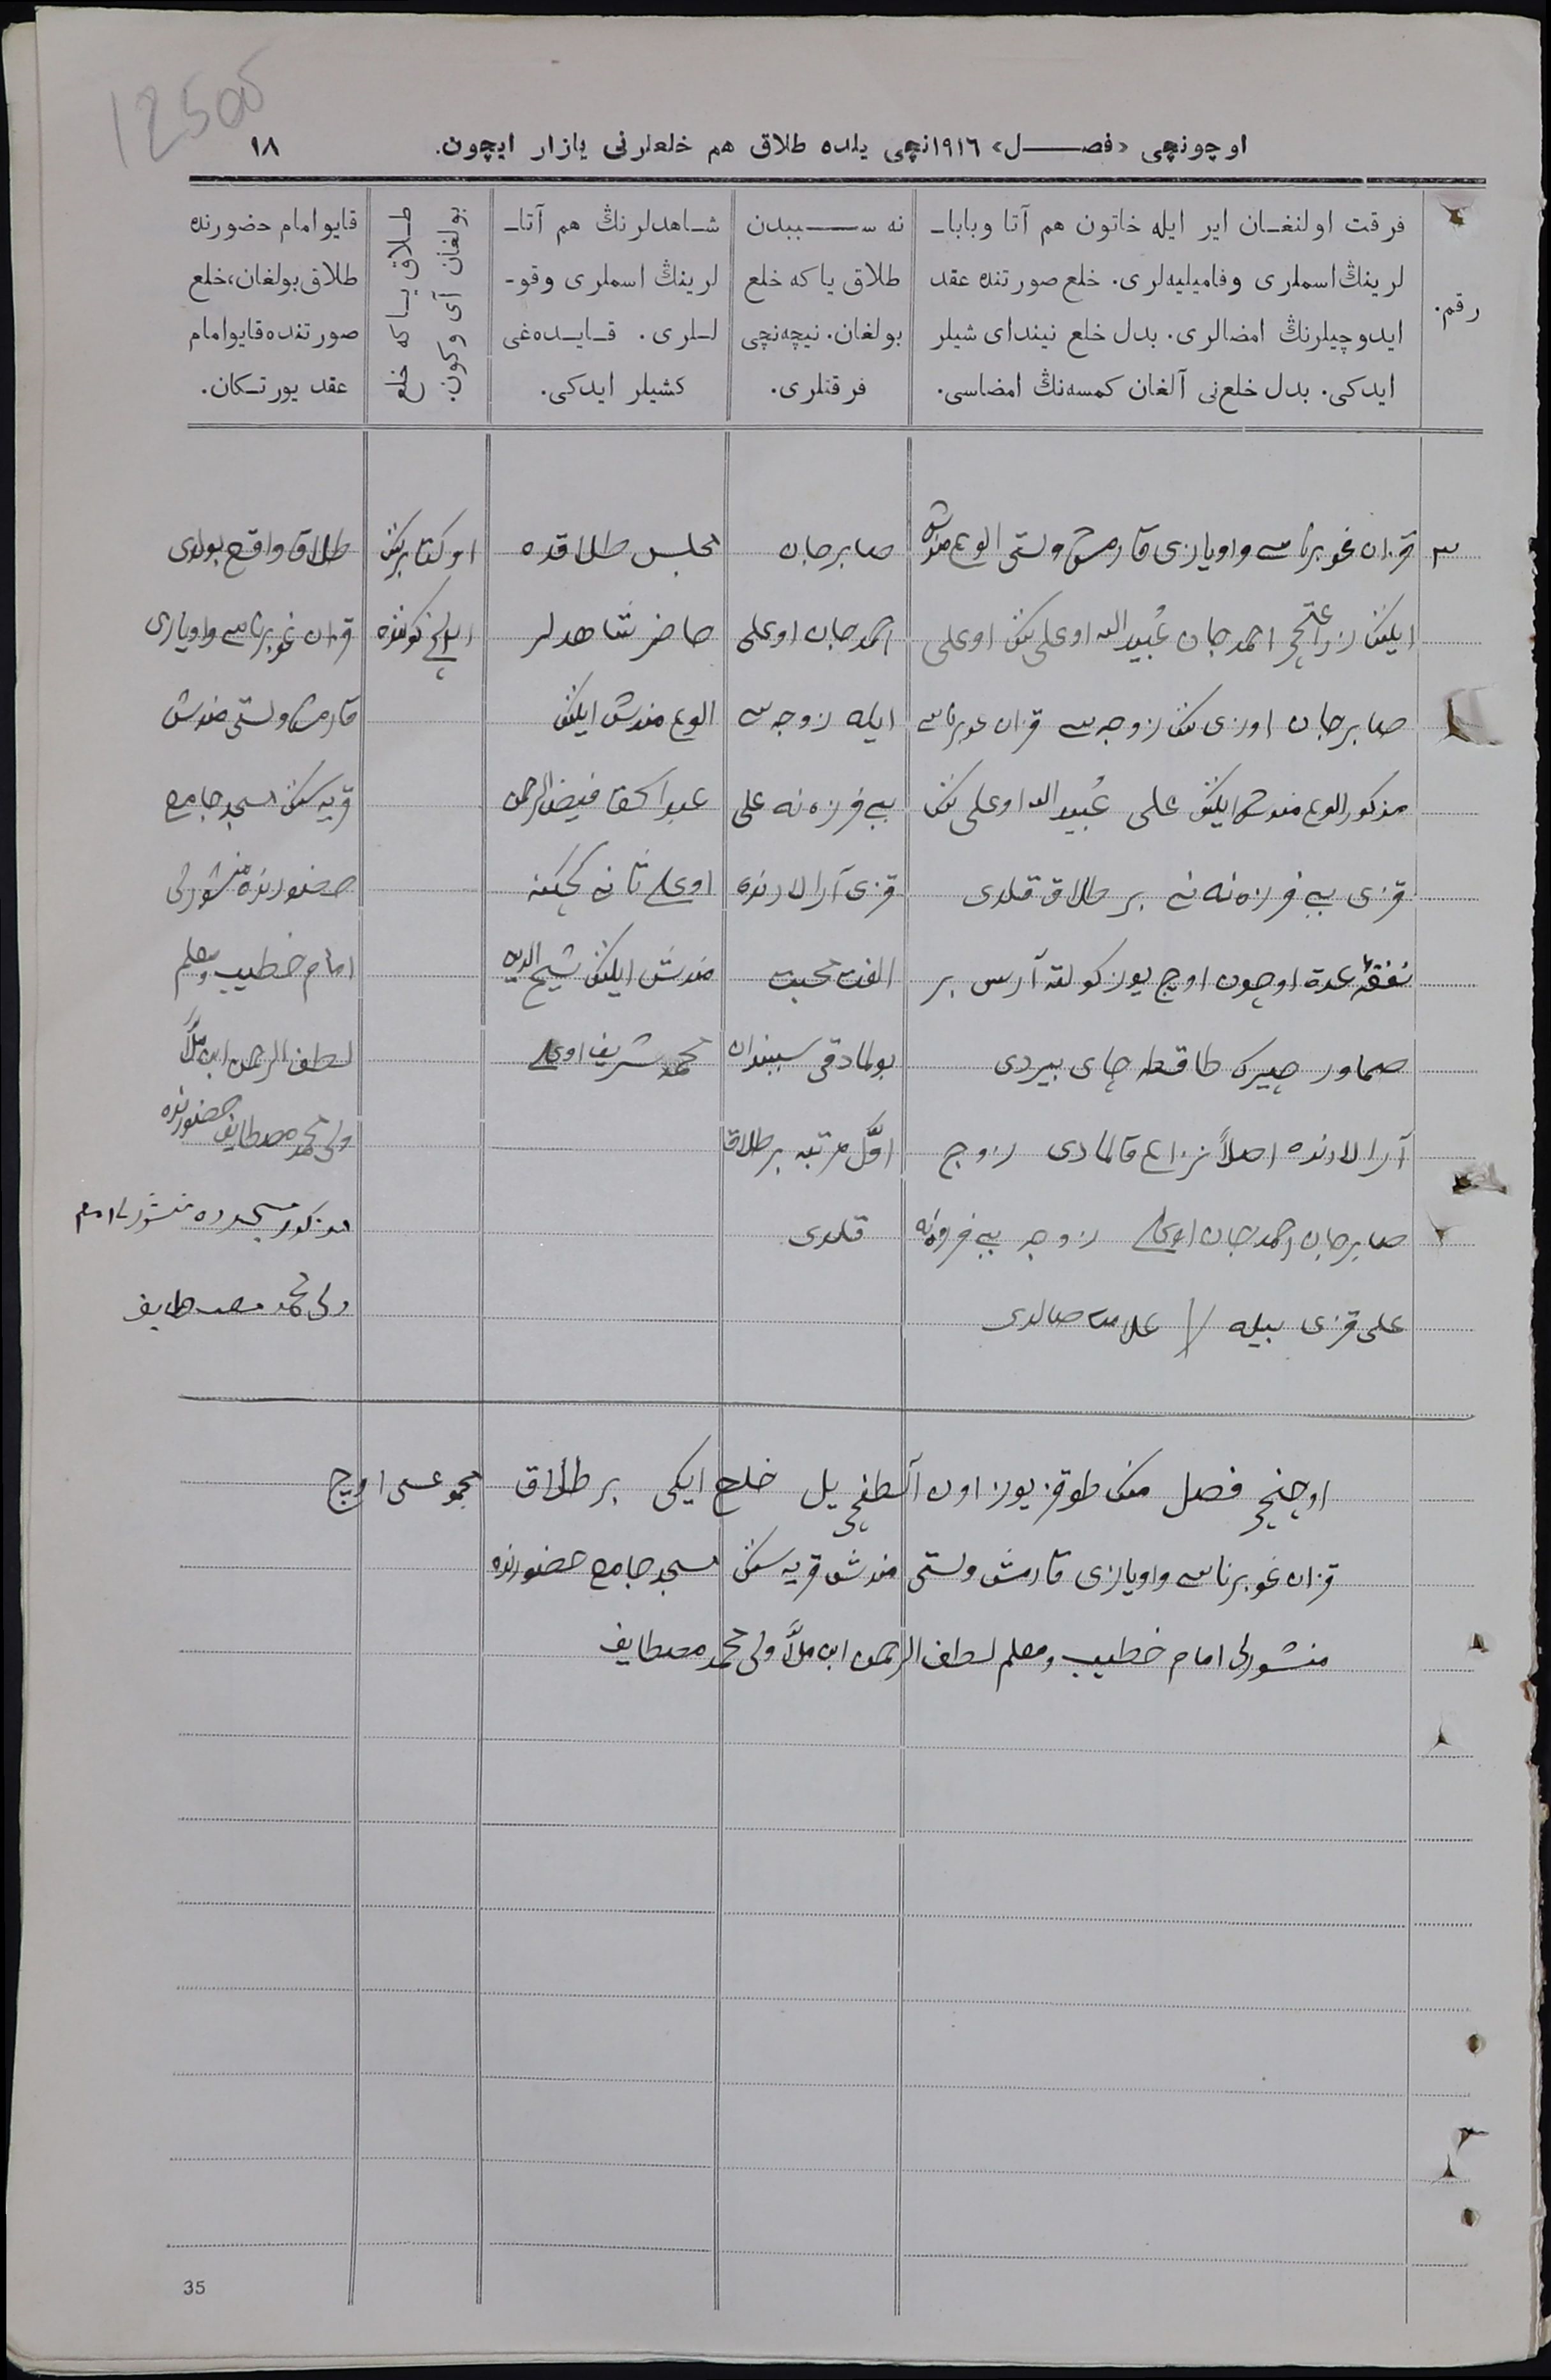 12500
اوچونچی «فصل» ۱۹۱۶نچی یلده طلاق هم خلعلرنی یازار ایچون.
۱۸
رقم.
فرقت اولنغان ایر ایله خاتون هم آتا وبابا-
لرینڭ اسملری وفامیلیه‌لری. خلع صورتنده عقد
ایدوچیلرنڭ امضالری. بدل خلع نیندای شیلر
ایدکی. بدل خلع‌نی آلغان کمسه‌نڭ امضاسی.
نه سببدن
طلاق یا که خلع
بولغان. نیچه‌نچی
فرقتلری.
شاهدلرنڭ هم آتا-
لرینڭ اسملری وقو-
للری. قایده‌غی
کشیلر ایدکی.
طلاق یا که خلع
بولغان آی وکون.
قایو امام حضورنده
طلاق بولغان، خلع
صورتنده قایو امام
عقد یورتکان.
۳
قزان غوبرناسی واویازی قارمش ولستی الوغ مندش
ایلینڭ احمدجان عُبیدالله اوغلی‌نڭ اوغلی
صابرجان اوزی‌نڭ زوجه‌سی قزان غوبرناسی
مذکور الوغ مندش ایلینڭ علی عُبیدالله اوغلی‌نڭ
قزی بی‌فرزانه‌نی بر طلاق قلدی
نفقهٔ عدة اوچون اوچ یوز کولته آرش بر
صماور چیرک طاقطه چای بیردی
آرالارنده اصلاً نزاع قالمادی زوج
صابرجان احمدجان اوغلی زوجه بی‌فرزانه
علی قزی بیله علامت صالدی
صابرجان
احمدجان اوغلی
ایله زوجه‌سی
بی‌فرزانه علی
قزی آرالارنده
الفت محبت
بولمادقی سببندان
اوّل مرتبه بر طلاق
قلدی
مجلس طلاقده
حاضر شاهدلر
الوغ مندش ایلینڭ
عبدالحق فیض‌الرحمن
اوغلی
مندش ایلینڭ شیخ‌الدین
محمدشریف اوغلی
اوکتابرنڭ
کوننده
طلاق واقع بولدی
قزان غوبرناسی واویازی
قارمش ولستی مندش
قریه‌سینڭ مسجد جامع
حضورنده منشورلی
امام خطیب ومعلم
لطف‌الرحمن ابن ملّا
ولی‌محمد مصطایف حضورنده
مذکور مسجدده منشورلی امام
ولی‌محمد مصطایف
اوچنچی فصل منڭ طوقز یوز اون آلطنچی یل خلع ایکی بر طلاق مجموعسی اوچ
قزان غوبرناسی واویازی قارمش ولستی مندش قریه‌سینڭ مسجد جامع حضورنده
منشورلی امام خطیب ومعلم لطف‌الرحمن ابن ملّا ولی‌محمد مصطایف
35